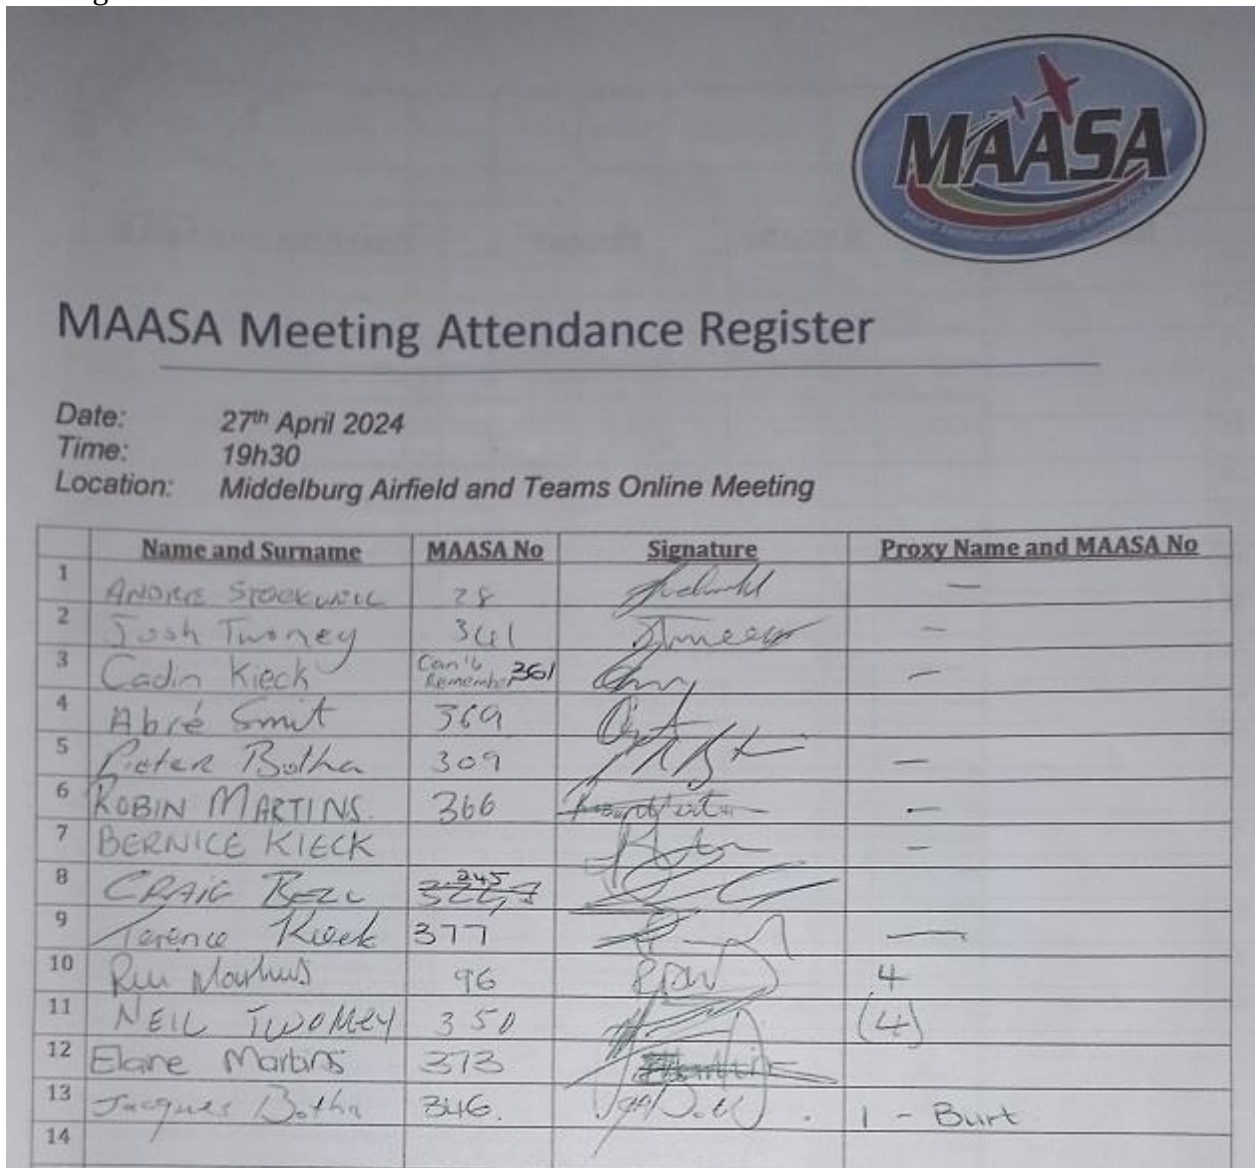 MAASA
MAASA Meeting Attendance Register
Date: 27th April 2024
Time: 19h30
Location: Middelburg Airfield and Teams Online Meeting
Name and Surname MAASA No Signature Proxy Name and MAASA No
1 ANDRE STOCKWELL 28 —
2 Josh Twomey 341 —
3 Cadin Kieck Can't Remember 361 —
4 Abré Smit 369
5 Pieter Botha 309 —
6 ROBIN MARTINS. 366 —
7 BERNICE KIECK —
8 CRAIG BELL 245
9 Terence Kieck 377 —
10 96 4
11 NEIL TWOMEY 350 (4)
12 Elaine Martins 373
13 Jacques Botha 346. 1 - Burt
14